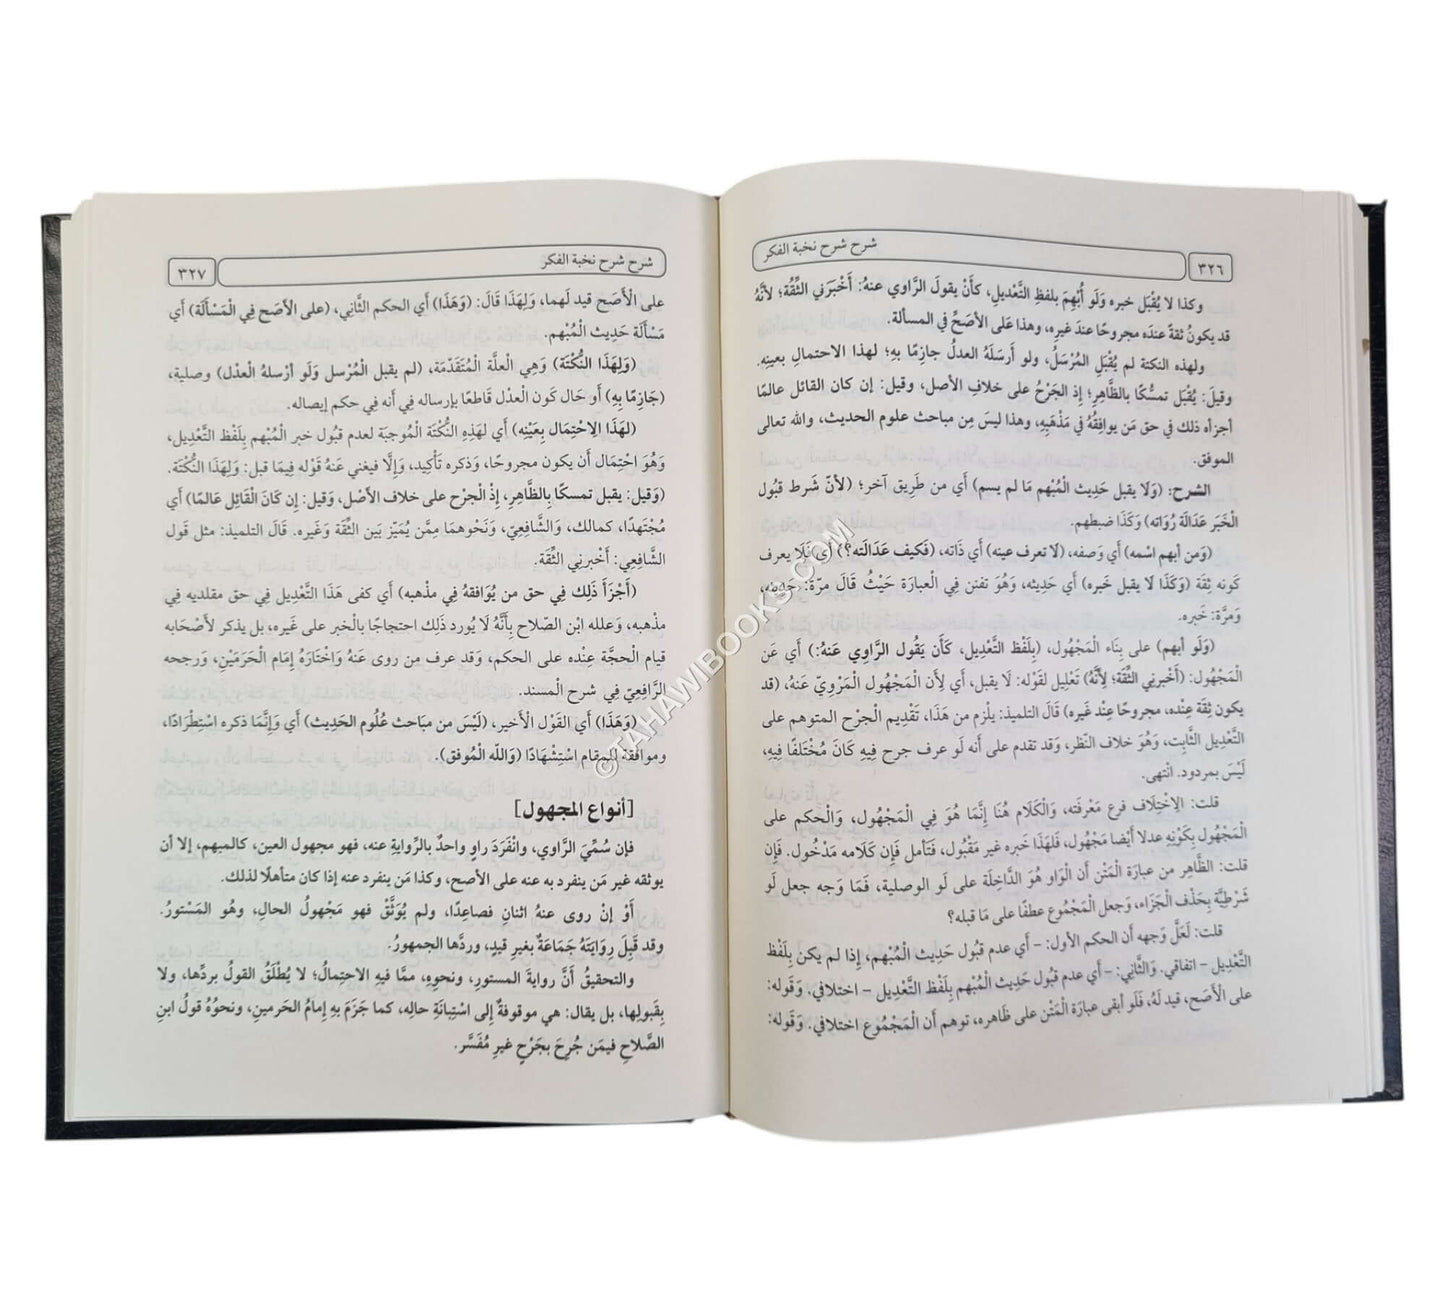 ٣٢٦
شرح شرح نخبة الفكر
وكذا لا يُقْبَل خبره وَلَو أُبْهِمَ بلفظِ التَّعْدِيلِ، كَأَنْ يقولَ الرَّاوي عنهُ: أَخْبَرَني الثِّقُة؛ لأنَّهُ
قد يكونُ ثقةً عندَه مجروحًا عندَ غيرِه، وهذا عَلى الأصَحِّ في المسألة.
ولهذه النكتة لم يُقْبَلِ المُرْسَلُ، ولو أرسَلَهُ العدلُ جازِمًا بهِ؛ لهذا الاحتمالِ بعينِه.
وقيلَ: يُقْبَل تمسُّكًا بالظَّاهِرِ؛ إذ الجَرْحُ على خلافِ الأصل، وقيل: إن كان القائل عالمًا
أجزأه ذلك في حق مَن يوافِقُهُ في مَذْهَبِهِ، وهذا ليسَ مِن مباحث علوم الحديث، والله تعالى
الموفق.
الشرح: (وَلا يقبل حَدِيث الْمُبْهم مَا لم يسم) أَي من طَرِيق آخر؛ (لأنّ شَرط قبُول
الْخَبَر عَدَالَة رُوَاته) وَكَذَا ضبطهم.
(وَمن أبهم اسْمه) أَي وَصفه، (لا تعرف عينه) أَي ذَاته، (فَكيف عَدَالَته؟) أَي فَلَا يعرف
كَونه ثِقَة (وَكَذَا لا يقبل خَبره) أَي حَدِيثه، وَهُوَ تفنن فِي الْعبارَة حَيْثُ قَالَ مرّة: حَدِيثه،
وَمرَّة: خَبره.
(وَلَو أبهم) على بِنَاء الْمَجْهُول، (بِلَفْظ التَّعْدِيل، كَأَن يَقُول الرَّاوِي عَنهُ:) أَي عَن
الْمَجْهُول: (أَخْبرنِي الثِّقَة؛ لِأَنَّهُ) تَعْلِيل لقَوْله: لَا يقبل، أَي لِأَن الْمَجْهُول الْمَرْوِيّ عَنهُ، (قد
يكون ثِقَة عِنْده، مجروحًا عِنْد غَيره) قَالَ التلميذ: يلْزم من هَذَا، تَقْدِيم الْجرْح المتوهم على
التَّعْدِيل الثَّابِت، وَهُوَ خلاف النّظر، وَقد تقدم على أَنه لَو عرف جرح فِيهِ كَانَ مُخْتَلفًا فِيهِ،
لَيْسَ بمردود. انْتهى.
قلت: الِاخْتِلَاف فرع مَعْرفَته، وَالْكَلَام هُنَا إِنَّمَا هُوَ فِي الْمَجْهُول، وَالْحكم على
الْمَجْهُول بِكَوْنِهِ عدلا أَيْضا مَجْهُول، فَلهَذَا خَبره غير مَقْبُول، فَتَأمل فَإِن كَلَامه مَدْخُول. فَإِن
قلت: الظَّاهِر من عبارَة الْمَتْن أَن الْوَاو هُوَ الدَّاخِلَة على لَو الوصلية، فَمَا وَجه جعل لَو
شَرْطِيَّة بِحَذْف الْجَزَاء، وَجعل الْمَجْمُوع عطفًا على مَا قبله؟
قلت: لَعَلَّ وَجهه أَن الحكم الأول: – أَي عدم قبُول حَدِيث الْمُبْهم، إِذا لم يكن بِلَفْظ
التَّعْدِيل – اتفاقي. وَالثَّانِي: – أَي عدم قبُول حَدِيث الْمُبْهم بِلَفْظ التَّعْدِيل – اختلافي. وَقَوله:
على الْأَصَح، قيد لَهُ، فَلَو أبقى عبارَة الْمَتْن على ظَاهره، توهم أَن الْمَجْمُوع اختلافي. وَقَوله:
شرح شرح نخبة الفكر
٣٢٧
على الْأَصَح قيد لَهما، وَلِهَذَا قَالَ: (وَهَذَا) أَي الحكم الثَّانِي، (على الأَصَح فِي الْمَسْأَلَة) أَي
مَسْأَلَة حَدِيث الْمُبْهم.
(وَلِهَذَا النُّكْتَة) وَهِي الْعلَّة الْمُتَقَدّمَة، (لم يقبل الْمُرْسل وَلَو أرْسلهُ الْعدْل) وصلية،
(جَازِمًا بِهِ) أَو حَال كَون الْعدْل قَاطعًا بإرساله فِي أَنه فِي حكم إيصاله.
(لهَذَا الِاحْتِمَال بِعَيْنِه) أَي لهَذِهِ النُّكْتَة الْمُوجبَة لعدم قبُول خبر الْمُبْهم بِلَفْظ التَّعْدِيل،
وَهُوَ احْتِمَال أَن يكون مجروحًا، وَذكره تَأْكِيد، وَإِلَّا فيغني عَنهُ قَوْله فِيمَا قبل: وَلِهَذَا النُّكْتَة.
(وَقيل: يقبل تمسكًا بِالظَّاهِرِ، إِذْ الْجرْح على خلاف الأَصْل، وَقيل: إِن كَانَ الْقَائِل عَالمًا) أَي
مُجْتَهدًا، كمالك، وَالشَّافِعِيّ، وَنَحْوهمَا مِمَّن يُمَيّز بَين الثِّقَة وَغَيره. قَالَ التلميذ: مثل قَول
الشَّافِعِي: أَخْبرنِي الثِّقَة.
(أَجْزَأَ ذَلِك فِي حق من يُوَافقهُ فِي مذْهبه) أَي كفى هَذَا التَّعْدِيل فِي حق مقلديه فِي
مذْهبه، وَعلله ابْن الصّلاح بِأَنَّهُ لَا يُورد ذَلِك احتجاجًا بالْخبر على غَيره، بل يذكر لأَصْحَابه
قيام الْحجَّة عِنْده على الحكم، وَقد عرف من روى عَنهُ وَاخْتَارَهُ إِمَام الْحَرَمَيْنِ، وَرجحه
الرَّافِعِيّ فِي شرح الْمسند.
(وَهَذَا) أَي القَوْل الْأَخير، (لَيْسَ من مبَاحث عُلُوم الحَدِيث) أَي وَإِنَّمَا ذكره اسْتِطْرَادًا،
وموافقة للمقام اسْتِشْهَادًا (وَاللَّه الْمُوفق).
[أنواع المجهول]
فإن سُمِّيَ الرَّاوي، وانْفَرَدَ راوٍ واحدٌ بالرِّوايةِ عنه، فهو مجهول العين، كالمبهم، إلا أن
يوثقه غير مَن ينفرد به عنه على الأصح، وكذا مَن ينفرد عنه إذا كان متأهلًا لذلك.
أَوْ إنْ روى عنهُ اثنانِ فصاعِدًا، ولم يُوَثَّقْ فهو مَجْهولُ الحالِ، وهُو المَسْتورُ.
وقد قَبِلَ رِوَايَتَهُ جَمَاعَةٌ بغيرِ قيدٍ، وردَّها الجمهورُ.
والتحقيقُ أَنَّ روايةَ المستورِ، ونحوِهِ، ممَّا فيهِ الاحتِمالُ؛ لا يُطْلَقُ القولُ بردِّها، ولا
بِقَبولِها، بل يقال: هي موقوفةٌ إلى اسْتِبانَةِ حالِه، كما جَزَمَ بهِ إِمامُ الحَرمينِ، ونحوُهُ قولُ ابنِ
الصَّلاحِ فيمَن جُرِحَ بجَرْحٍ غيرِ مُفَسَّر.
©TAHAWIBOOKS.COM